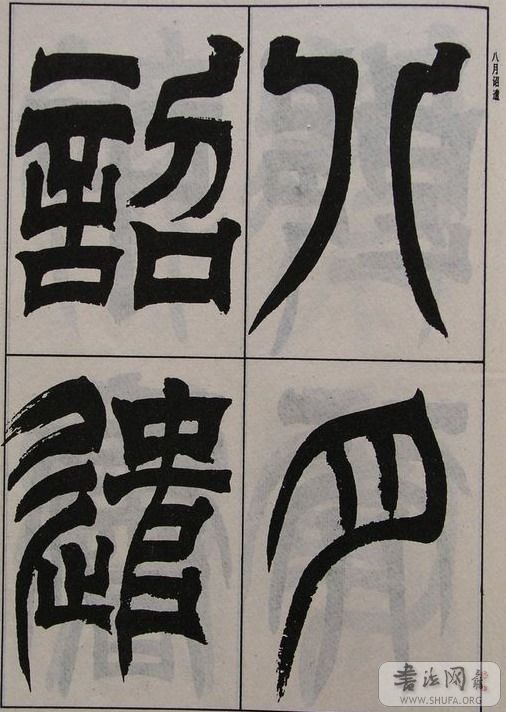 八月诏遣
八月
詔遣
书法网
WWW.SHUFA.ORG